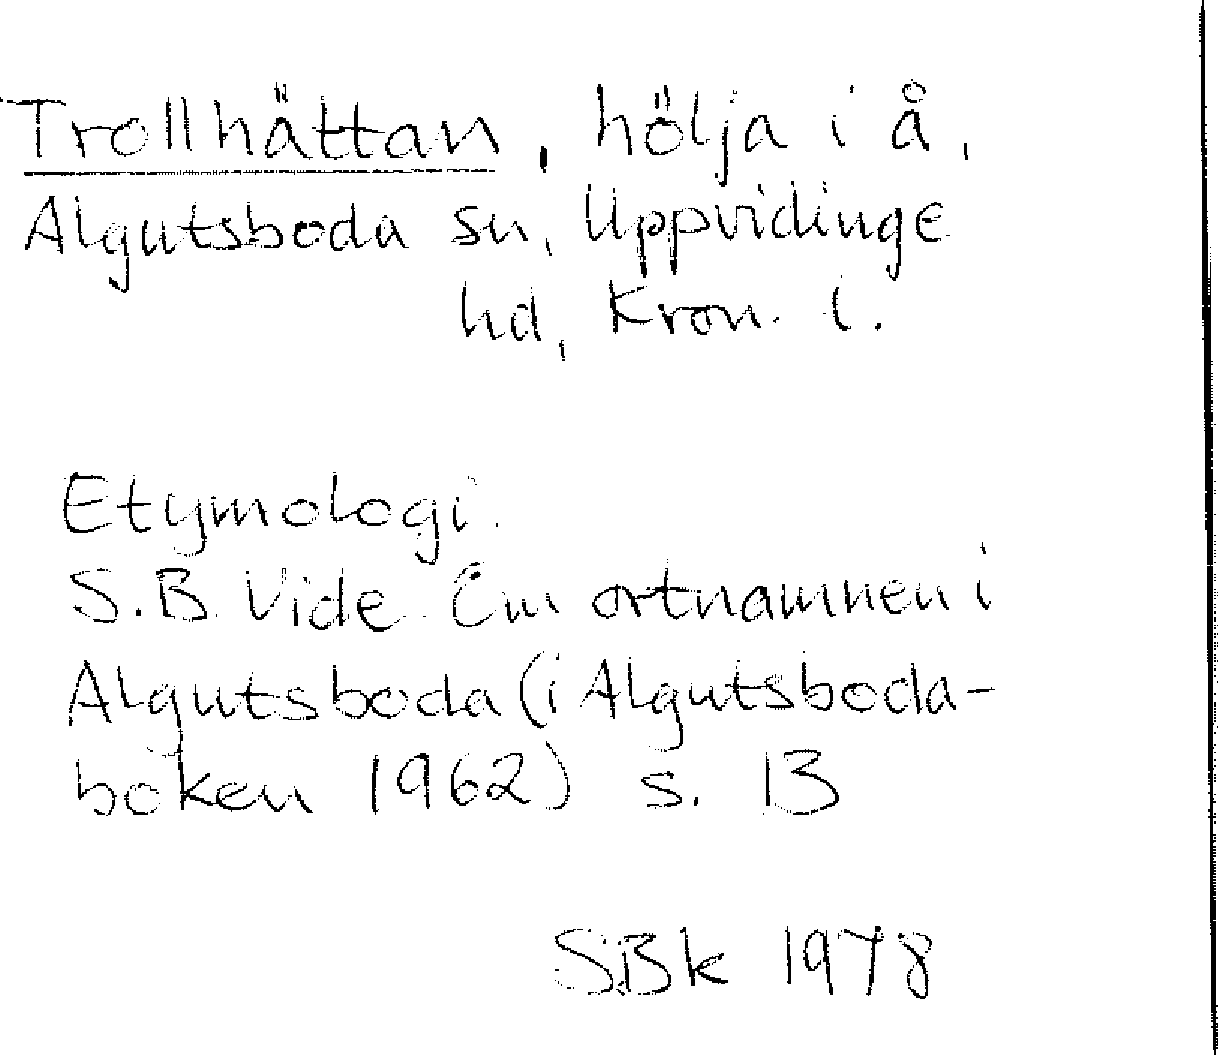 Trollhättan, hölja i å,
Algutsboda sn, Uppvidinge
hd, Kron. l.
Etymologi.
S.B. Vide Om ortnamnen i
Algutsboda (i Algutsboda-
boken 1962) s. 13
SBk 1978